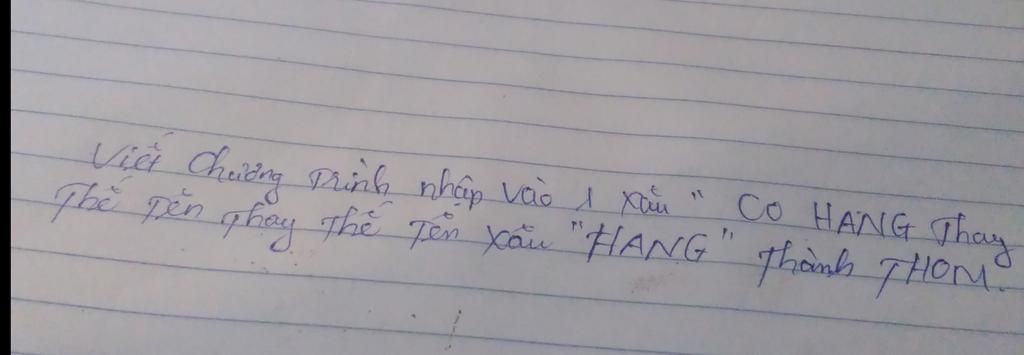 Viết chương trình nhập vào 1 xâu " CO HANG Thay
Thế Tên Thay Thế Tên xâu "HANG" Thành THOM.